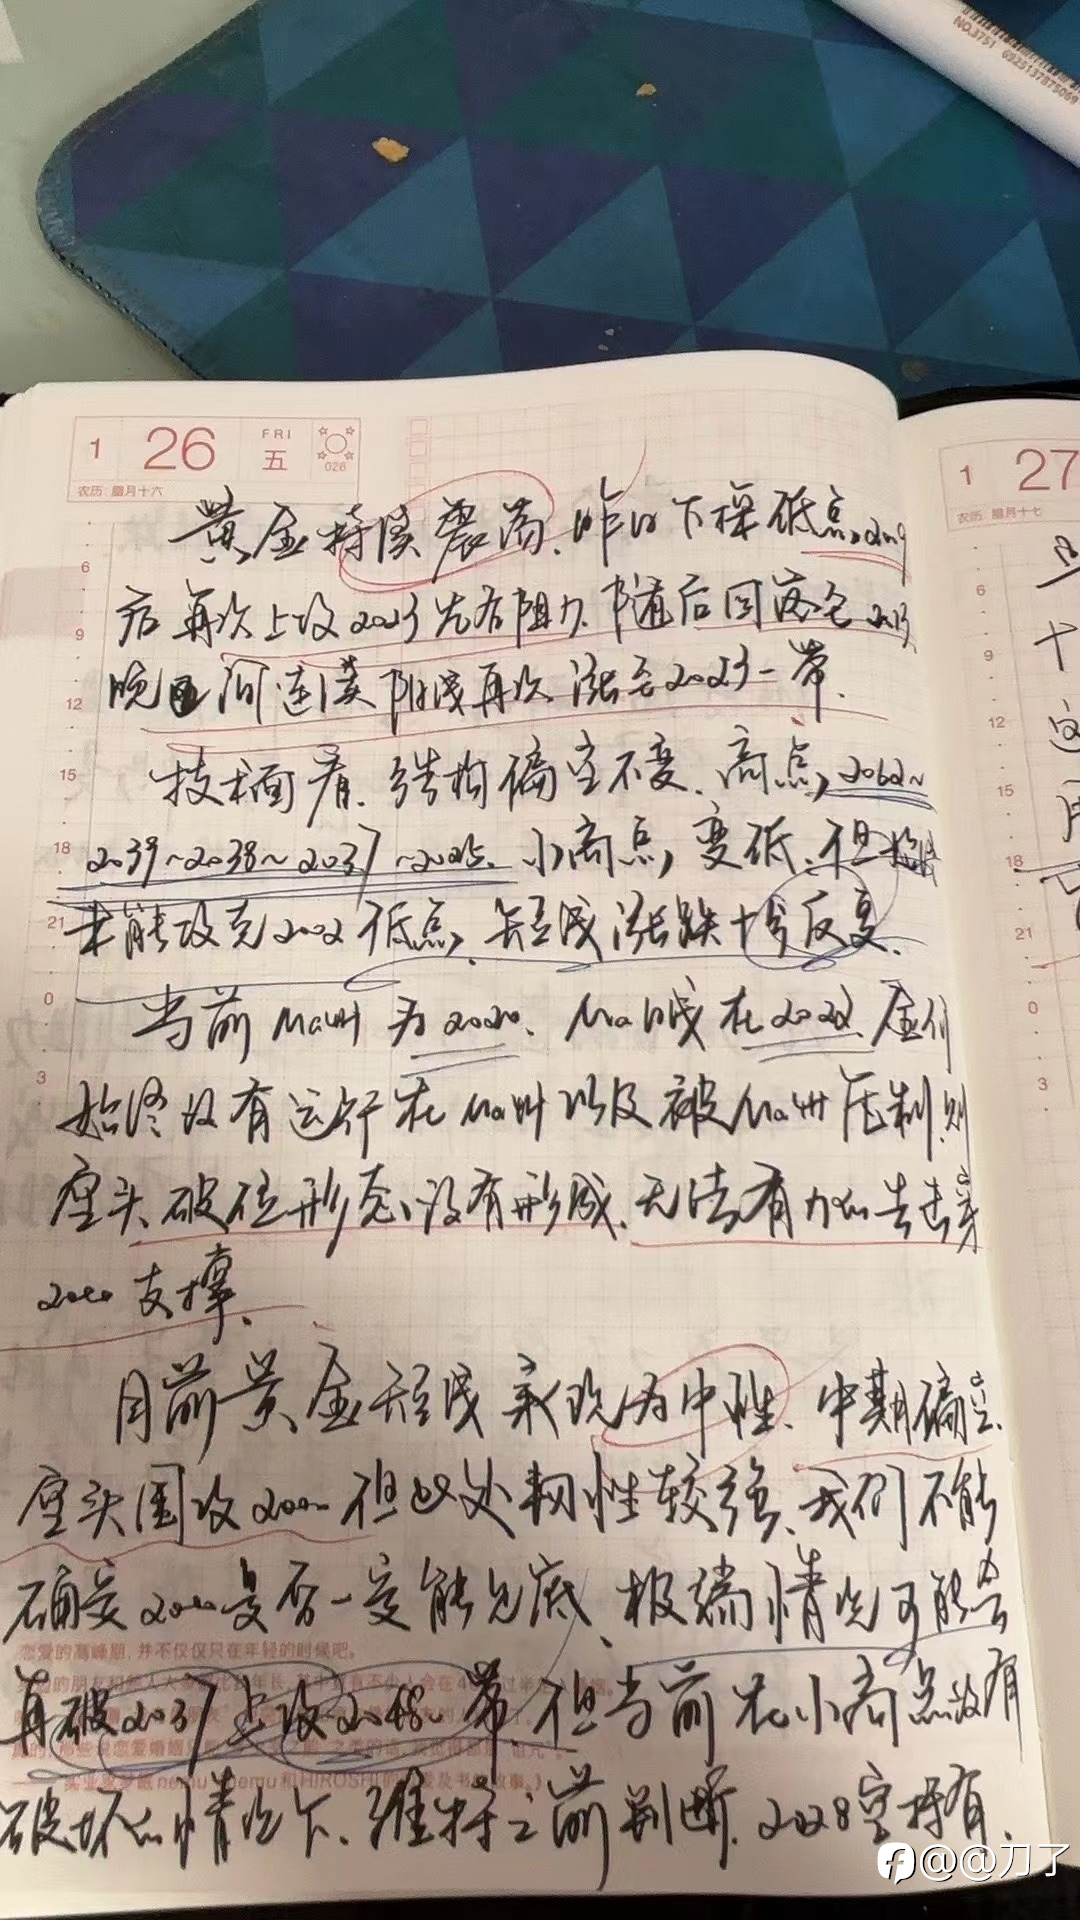 NO.3751 6925137875069
1 26 FRI 五 026
农历:腊月十六
1 27
农历:腊月十七
黄金持续震荡、昨日下探低点2009
后再次上攻2023先有阻力、随后回落至2013
晚间连续阳线再次涨至2023一带、
技术面看、结构偏空不变、高点2062~
2039~2038~2037~2025、小高点变低、但始终
未能攻克2002低点、短线涨跌十分反复、
当前Ma4H为2020、Ma日线在2022、金价
始终没有运行在Ma4H以及被Ma4H压制、则
空头破位形态没有形成、无法有力的去击穿
2000支撑、
目前黄金短线表现为中性、中期偏空、
空头围攻2000但此处韧性较强、我们不能
确定2000是否一定能见底、极端情况可能会
再破2037上攻2048一带、但当前在小高点没有
破坏的情况下、维持之前判断、2028空持有、
恋爱的高峰期,并不仅仅只在年轻的时候吧。
6
9
12
15
18
21
0
3
6
9
12
15
18
21
0
3
@@刀了